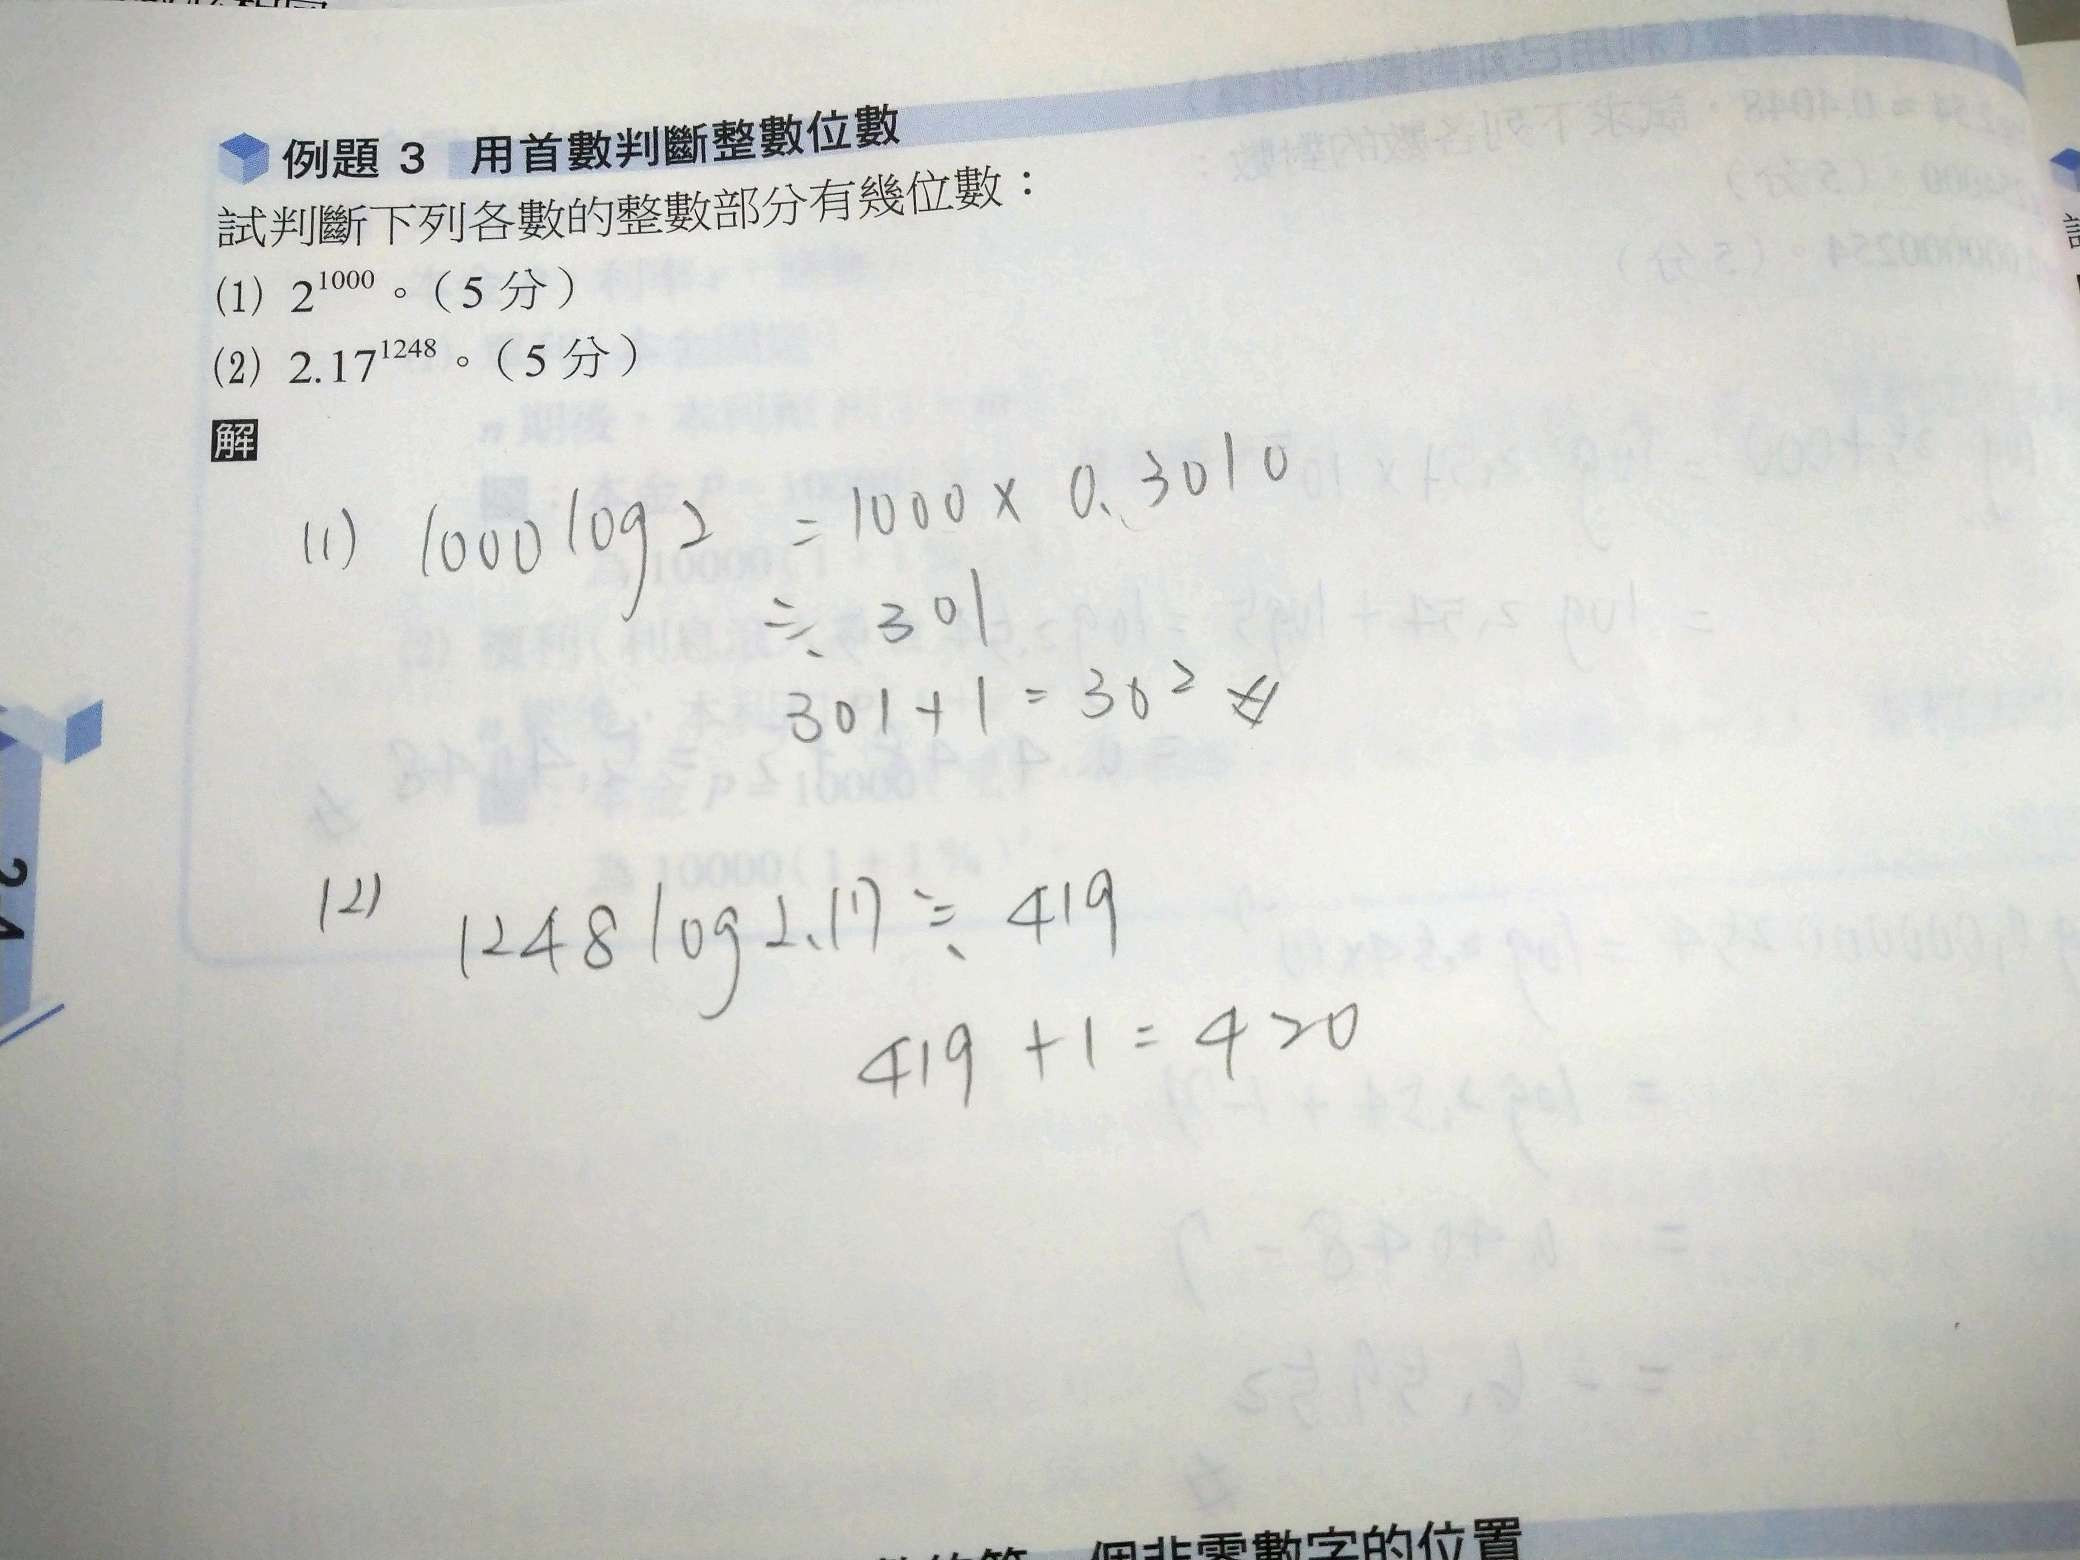 例題 3 用首數判斷整數位數
試判斷下列各數的整數部分有幾位數：
(1) 2^1000。（5 分）
(2) 2.17^1248。（5 分）
解
(1) 1000 log 2 = 1000 × 0.3010
≒ 301
301 + 1 = 302
(2) 1248 log 2.17 ≒ 419
419 + 1 = 420
個非零數字的位置